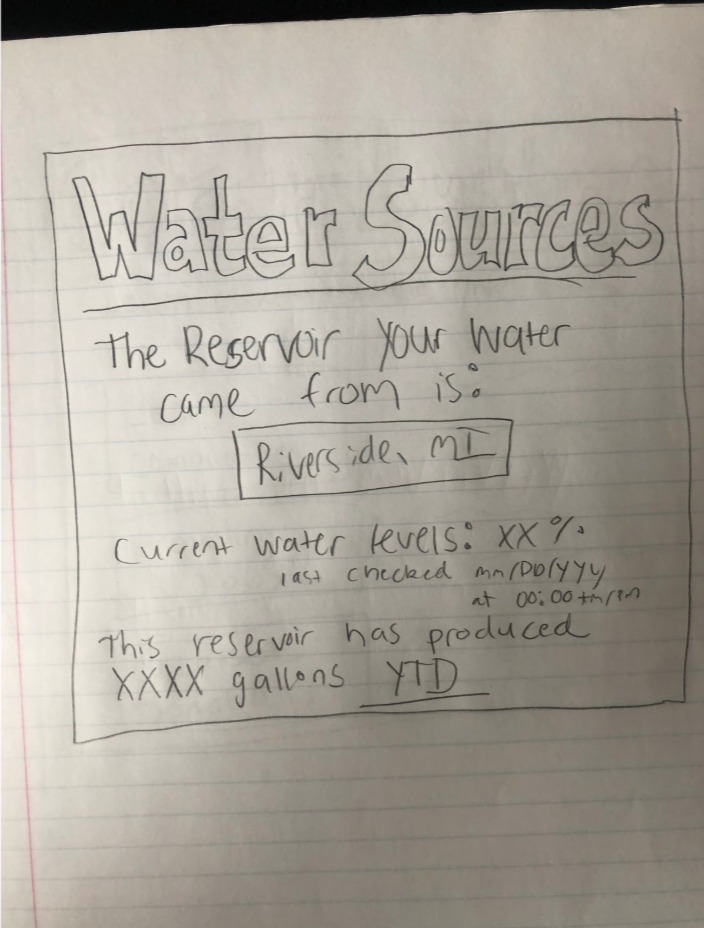 Water Sources
The Reservoir your water
came from is:
Riverside, MI
Current water levels: XX%
last checked mm/DD/YYYY
at 00:00
This reservoir has produced
XXXX gallons YTD